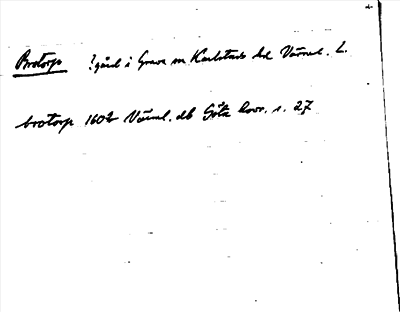 Brotorp ?gård i Grava sn Karlstads hd Värml. L.
brotorp 1602 Värml. db Göta hovr. s. 27